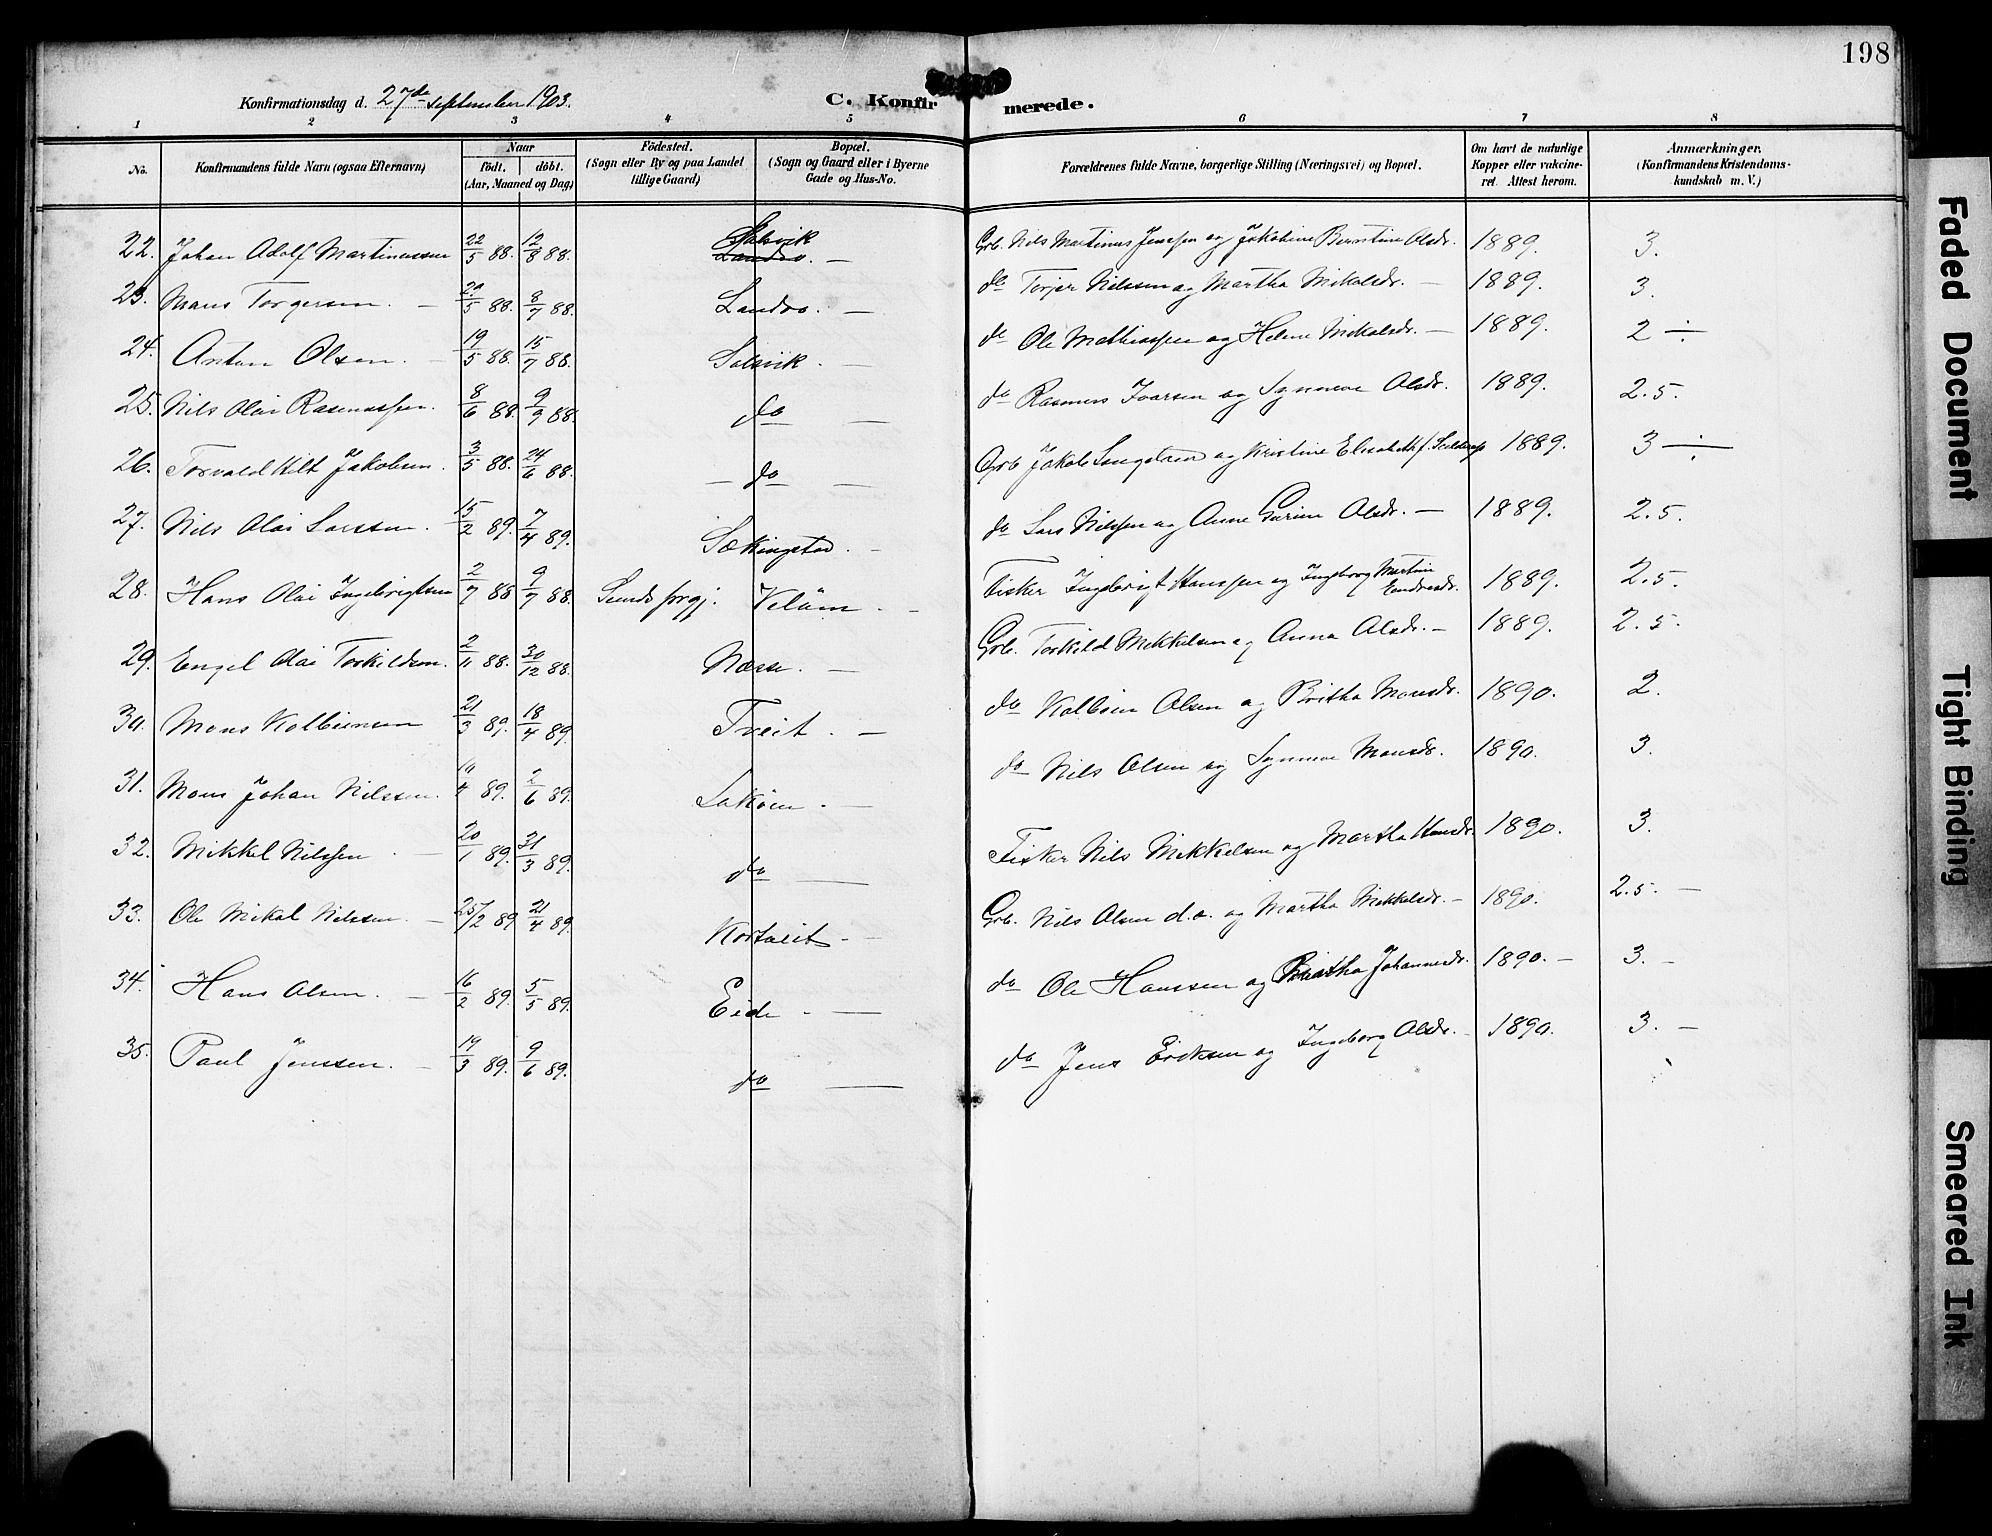 198
Konfirmationsdag d. 27de september 1903.
C. Konfirmerede.
1 2 3 4 5 6 7 8
No. Konfirmandens fulde Navn (ogsaa Efternavn) Naar födt. döbt. (Aar, Maaned og Dag) Födested. (Sogn eller By og paa Landet tillige Gaard) Bopæl. (Sogn og Gaard eller i Byerne Gade og Hus-No. Forældrenes fulde Navne, borgerlige Stilling (Næringsvei) og Bopæl. Om havt de naturlige Kopper eller vakcineret. Attest herom. Anmærkninger. (Konfirmandens Kristendomskundskab m. V.)
22. Johan Adolf Martinussen 22/5 88. 12/8 88. Solsvik Landro. — Grb. Nils Martinus Jenssen og Jakobine Berntine Olsdr. 1889. 3.
23. Mans Torgersen. — 20/5 88. 8/7 88. Landro. — do Torger Nilssen og Martha Mikalsdr. — 1889. 3.
24. Anton Olsen. — 19/5 88. 15/7 88. Solsvik. — do Ole Mathiassen og Helene Mikalsdr. — 1889. 2 ÷
25. Nils Olai Rasmussen. 8/6 88. 9/9 88. do — do Rasmus Ivarsen og Synneve Olsdr. 1889. 2.5.
26. Torvald Jakobsen. 3/5 88. 24/6 88. — do — Grb Jakob og Kristine Elisabeth f. 1889. 3 ÷
27. Nils Olai Larssen. 15/2 89. 7/4 89. Sækingstad. — do Lars Nilssen og Anne Gurine Olsdr. — 1889. 2.5.
28. Hans Olai Ingebrigtsen 2/7 88 9/7 88. Sunds prgj. Veløen. — Fisker Ingebrigt Hanssen og Ingeborg Martine Endresdr. 1889. 2.5.
29. Engel Olai Torkildsen. 2/11 88. 30/12 88. Næsse. — Grb. Torkild Mikkelsen og Anna Olsdr. — 1889. 2.5.
30. Mons Kolbeinsen 21/3 89. 18/4 89. Tveit. — do Kolbein Olsen og Britha Monsdr. 1890. 2.
31. Mons Johan Nilssen. /4 89. 2/6 89. — do Nils Olsen og Synneve Monsdr. 1890. 3.
32. Mikkel Nilssen — 20/1 89. 31/3 89. do — Fisker Nils Mikkelsen og Martha Hansdr 1890. 3.
33. Ole Mikal Nilssen. — 25/2 89 21/4 89. Kortveit — Grb. Nils Olsen d.e. og Martha Mikkelsdr. — 1890. 2.5. —
34. Hans Olsen. — 16/2 89. 5/5 89. Eide — do Ole Hanssen og Britha Johannesdr. 1890. — 3. —
35. Paul Jenssen. — 19/3 89. 9/6 89. do — do Jens Eriksen og Ingeborg Olsdr. 1890. 3. —
Faded Document
Tight Binding
Smeared Ink